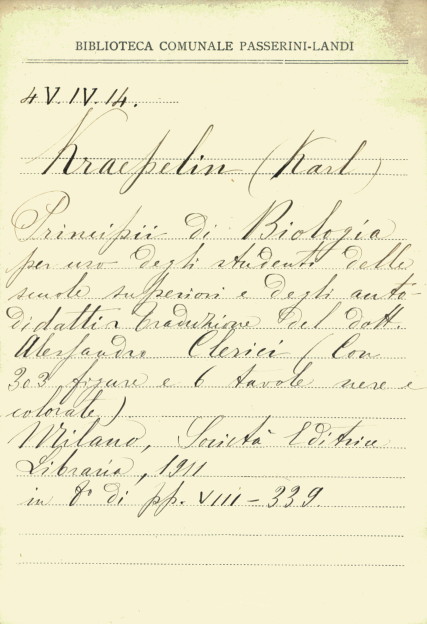 BIBLIOTECA COMUNALE PASSERINI-LANDI
4 V. IV. 14.
Kraepelin (Karl)
Principii di Biologia
per uso degli studenti delle
scuole superiori e degli auto-
didatti Traduzione del dott.
Alessandro Clerici (Con
303 figure e 6 tavole nere e
colorate)
Milano, Società Editrice
Libraria, 1911
in 8° di pp. VIII - 339.